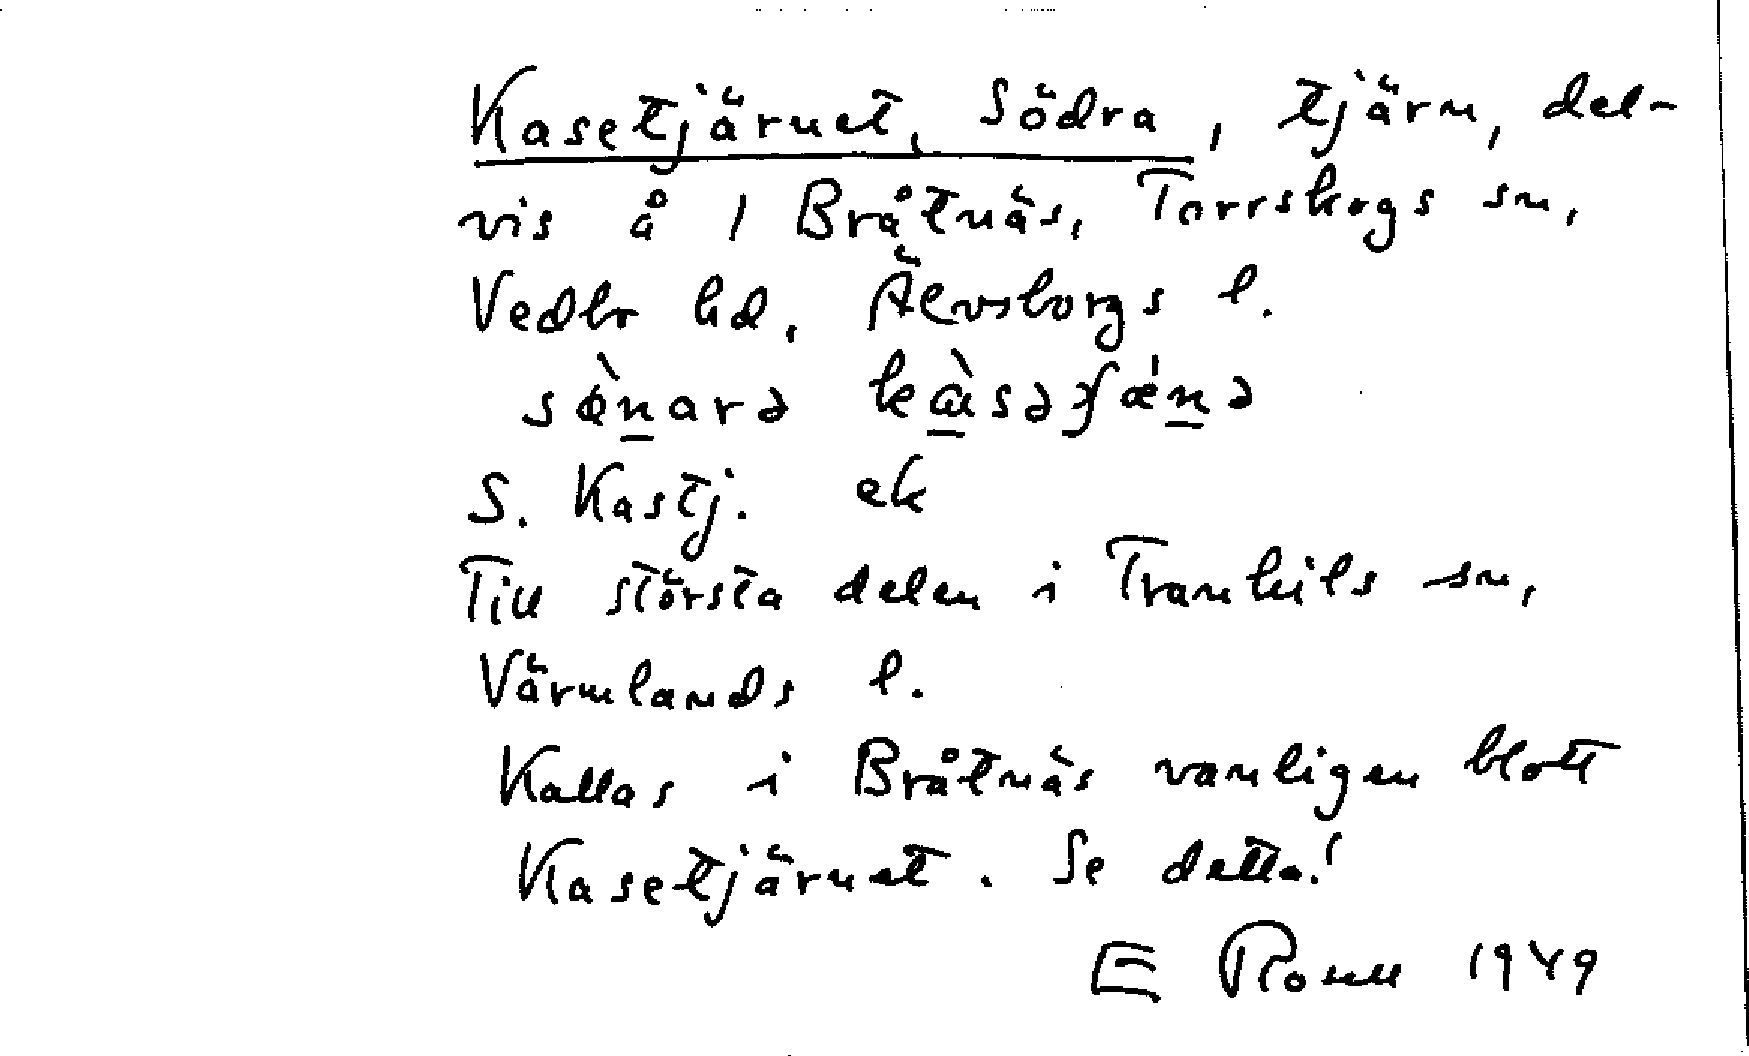 Kasetjärnet, Södra, tjärn, del-
vis å 1 Bråtnäs, Torrskogs sn,
Vedbo hd, Älvsborgs l.
S. Kastj. ek
Till största delen i Trankils sn,
Värmlands l.
Kallas i Bråtnäs vanligen blott
Kasetjärnet. Se detta!
E 1949